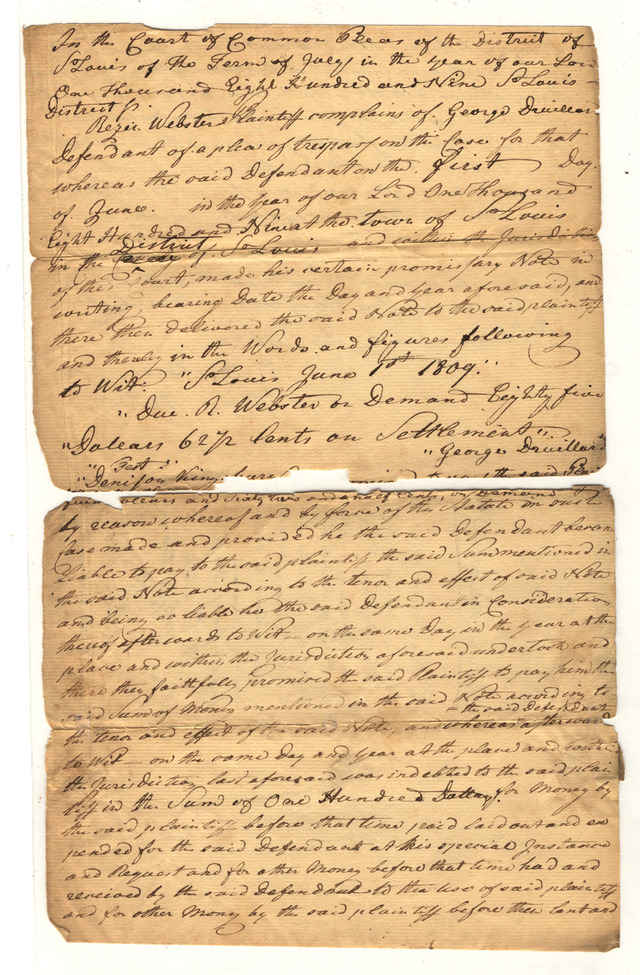 In the Court of Common Pleas of the District of
St Louis of the Term of July in the year of our Lord
One thousand Eight Hundred and Nine St Louis
District Ss.
Rezin Webster Plaintiff complains of George Druillard
Defendant of a plea of trespass on the Case for that
whereas the said Defendant on the first Day.
of June. in the year of our Lord One Thousand
Eight Hundred and Nine at the town of St Louis
in the District of St Louis and within the Jurisdiction
of this Court, made his certain promissary Note in
writing, bearing Date the Day and year aforesaid, and
there then delivered the said Note to the said plaintiff
and thereby in the Words and figures following
to Wit. "St Louis June 1st 1809."
"Due. R. Webster on Demand Eighty five
"Dollars 62 1/2 Cents on Settlement".
"George Druillard"
"Test
"Denison
Dollars and Sixty two and an half Cents, on Demand
by reason whereof and by force of the Statute in such
Case made and provided he the said Defendant became
liable to pay to the said plaintiff the said Sum mentioned in
the said Note according to the tenor and effect of said Note
and being so liable he the said Defendant in Consideration
thereof afterwards to Wit on the same Day in the year at the
place and within the Jurisdiction aforesaid undertook and
there then faithfully promised the said Plaintiff to pay him the
said Sum of Money mentioned in the said Note according to
the said Defendant
the tenor and effect of the said Note, and whereas afterward
to Wit on the same Day and year at the place and within
the Jurisdiction last aforesaid was indebted to the said plain
tiff in the Sum of One Hundred Dollars. for Money by
the said plaintiff before that time paid laid out and ex
pended for the said Defendant at his special Instance
and Request and for other Money before that time had and
received by the said Defendant to the use of said plaintiff
and for other Money by the said plaintiff before then lent and